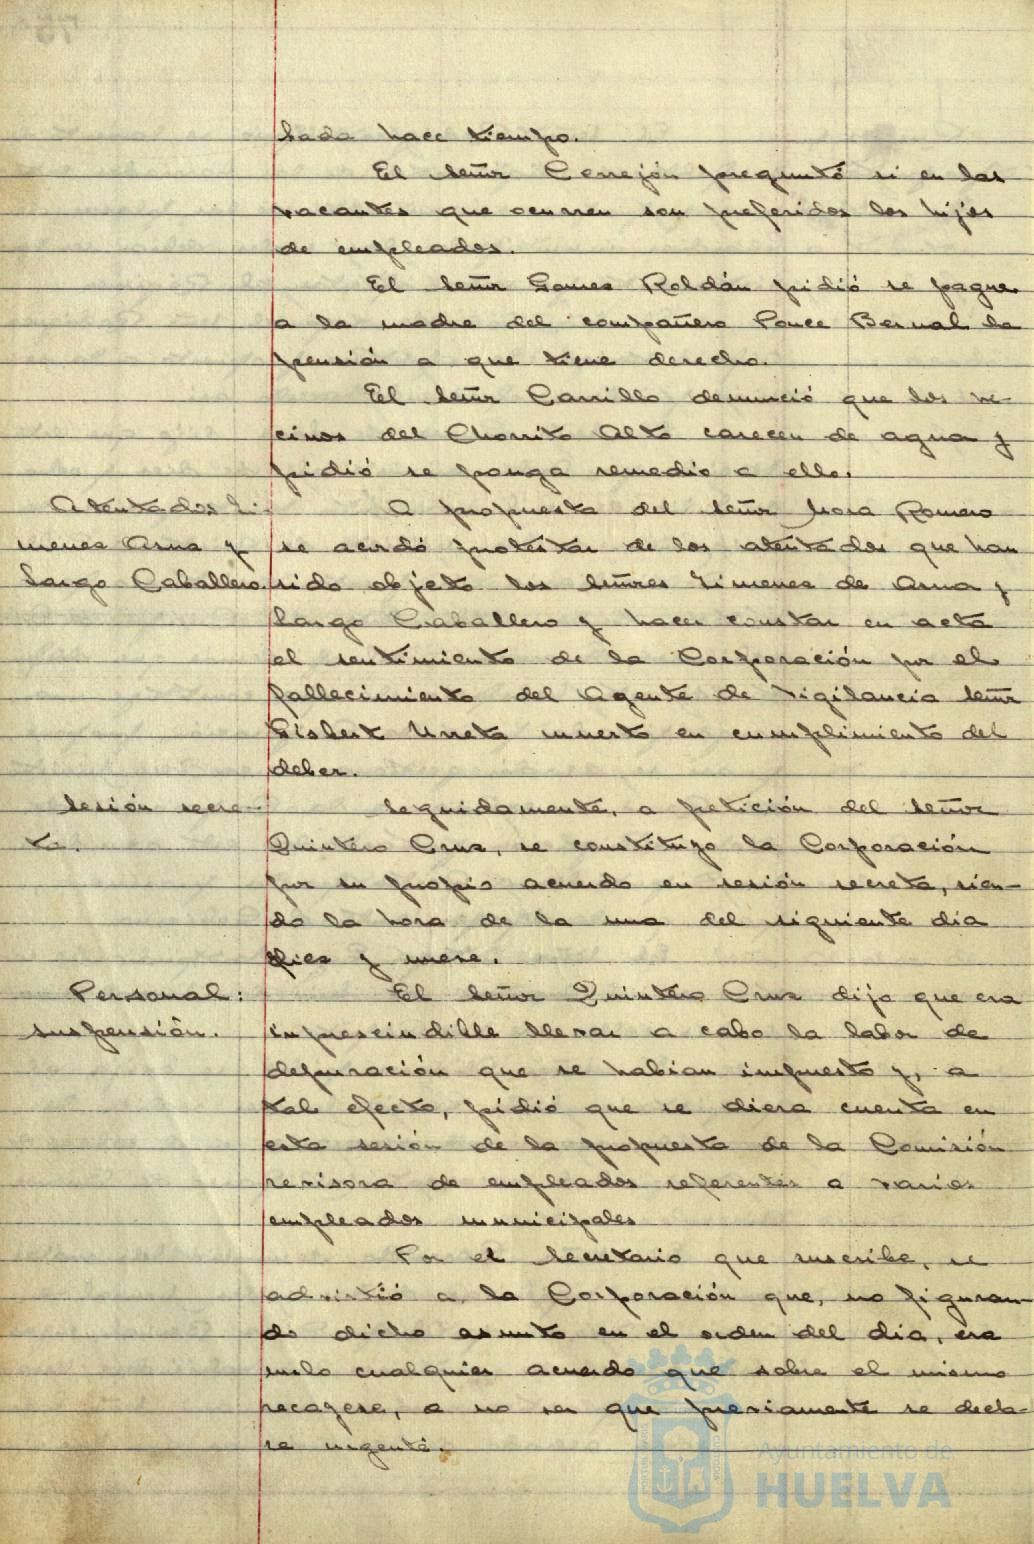 hada hace tiempo.
El señor Cerrejón preguntó si en las
vacantes que ocurren son preferidos los hijos
de empleados.
El señor Gomes Roldán pidió se pague
a la madre del compañero Ponce Bernal la
pensión a que tiene derecho.
El señor Carrillo denunció que los ve-
cinos del Chorrito Alto carecen de agua y
pidió se ponga remedio a ello.
Atentados Ji-
menes Asua y
Largo Caballero.
A propuesta del señor Mora Romero
se acordó protestar de los atentados que han
sido objeto los señores Jimenes de Asua y
Largo Caballero y hacer constar en acta
el sentimiento de la Corporación por el
fallecimiento del Agente de Vigilancia señor
Gisbert Urreta muerto en cumplimiento del
deber.
Sesión secre-
ta.
Seguidamente, a petición del señor
Quintero Cruz, se constituyo la Corporación
por su propio acuerdo en sesión secreta, sien-
do la hora de la una del siguiente día
diez y nueve.
Personal:
suspensión.
El señor Quintero Cruz dijo que era
imprescindible llevar a cabo la labor de
depuración que se habían impuesto y, a
tal efecto, pidió que se diera cuenta en
esta sesión de la propuesta de la Comisión
revisora de empleados referentes a varios
empleados municipales
Por el Secretario que suscribe, se
advirtió a la Corporación que, no figuran-
do dicho asunto en el orden del día, era
nulo cualquier acuerdo que sobre el mismo
recayese, a no ser que previamente se decla-
re urgente.
Ayuntamiento de
HUELVA